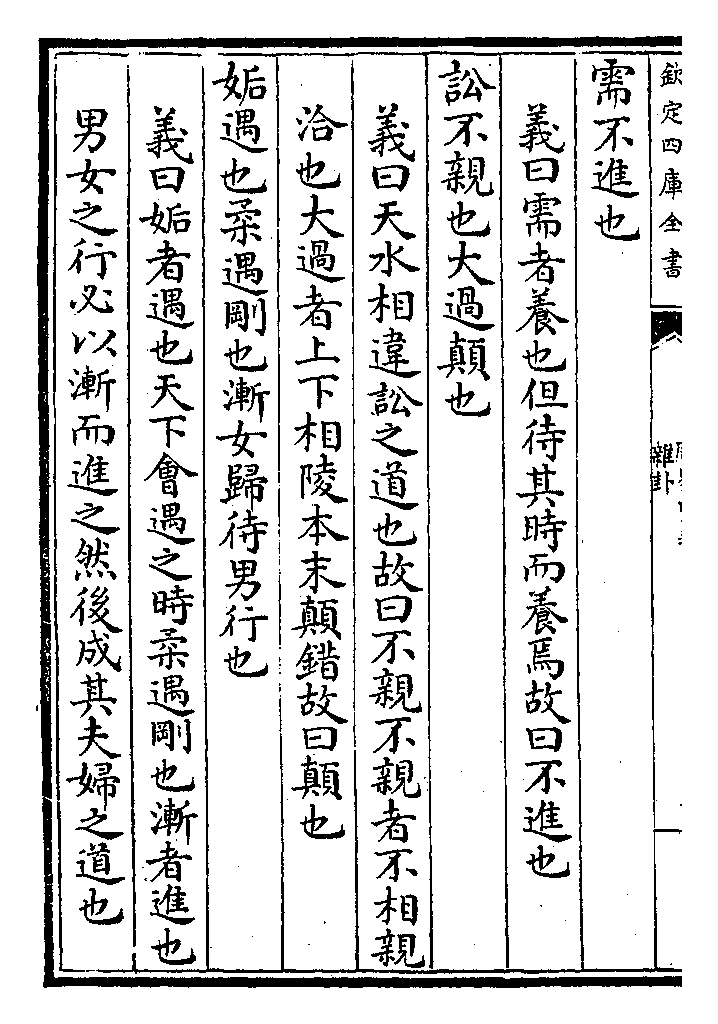 欽定四庫全書
雜卦
需不進也
義曰需者養也但待其時而養焉故曰不進也
訟不親也大過顛也
義曰天水相違訟之道也故曰不親不親者不相親
洽也大過者上下相陵本末顛錯故曰顛也
姤遇也柔遇剛也漸女歸待男行也
義曰姤者遇也天下會遇之時柔遇剛也漸者進也
男女之行必以漸而進之然後成其夫婦之道也